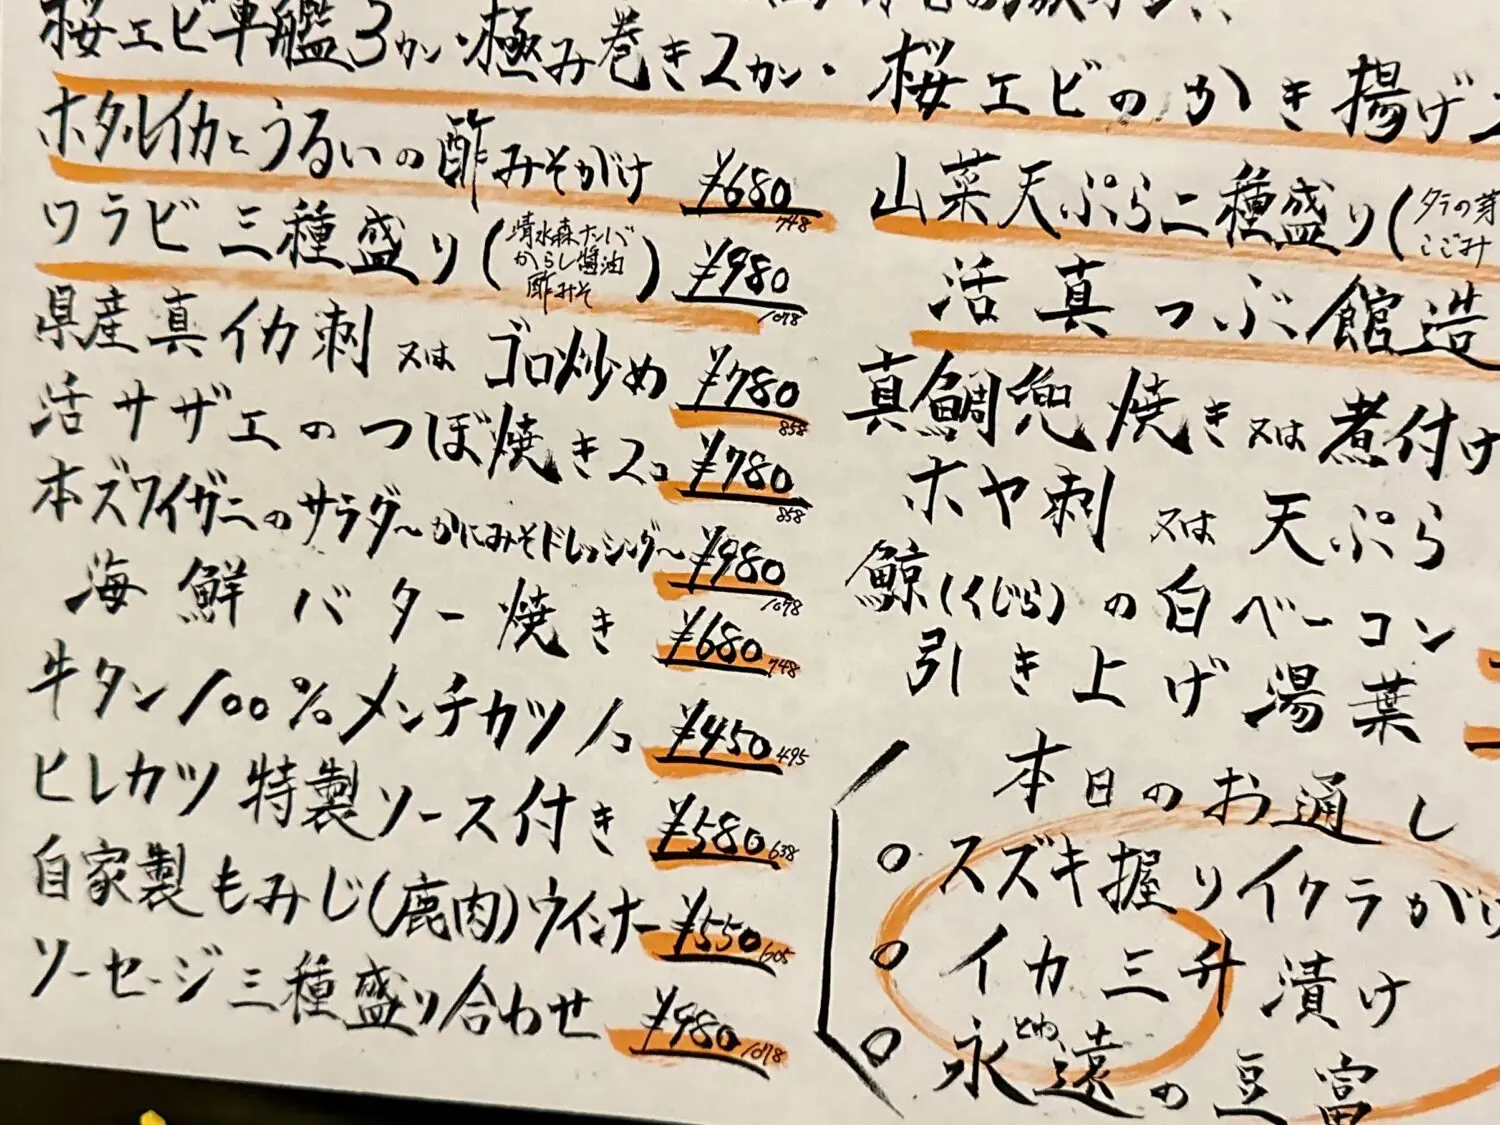 桜エビ軍艦3カン・極み巻き2カン・桜エビのかき揚げ
ホタルイカとうるいの酢みそがけ ¥680 748
ワラビ三種盛り(清水森ナンバ からし醤油 酢みそ) ¥980 1078
県産真イカ刺又はゴロ炒め ¥780 858
活サザエのつぼ焼き2コ ¥780 858
本ズワイガニのサラダ〜かにみそドレッシング〜 ¥980 1078
海鮮バター焼き ¥680 748
牛タン100%メンチカツ1コ ¥450 495
ヒレカツ特製ソース付き ¥580 638
自家製もみじ(鹿肉)ウインナー ¥550 605
ソーセージ三種盛り合わせ ¥980 1078
山菜天ぷら二種盛り(タラの芽 こごみ
活真つぶ館造
真鯛兜焼き又は煮付け
ホヤ刺又は天ぷら
鯨(くじら)の白ベーコン
引き上げ湯葉
本日のお通し
○スズキ握りイクラがけ
○イカ三升漬け
○永遠(とわ)の豆富